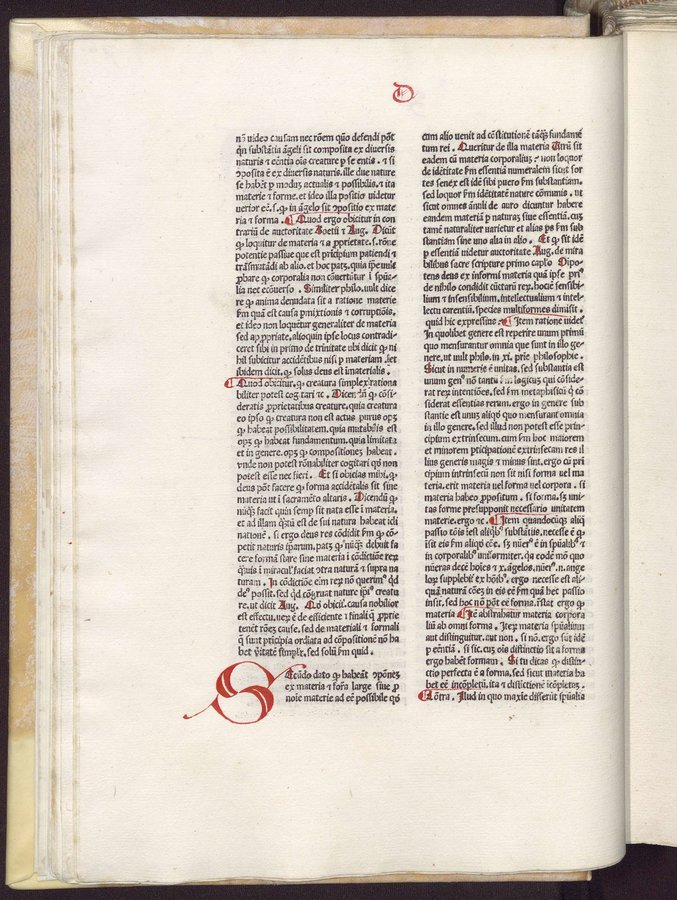 D
nō video causam nec rōem quō defendi pōt
qn substātia āgeli sit composita ex diversis
naturis ⁊ eētia oīs creature p se entis. ⁊ si
ꝯposita ē ex diuersis naturis. ille due nature
se habēt p modū actualis ⁊ possibilis. ⁊ ita
materie ⁊ forme. et ideo illa positio videtur
verior eē. s. ꝙ in āgelo sit ꝯpositio ex mate
ria ⁊ forma. ¶ Quod ergo obicitur in con
trariū de auctoritate Boetii ⁊ Aug. Dicūt
ꝙ loquitur de materia ⁊ a ꝓprietate. s. rōne
potentie passiue que est pricipium patiendi ⁊
trāsmutādi ab alio. et hoc patꝫ. quia ipse vult
ꝓbare ꝙ corporalia non cōuertūtur ī spūa
lia nec ecōuerso. Similiter philo. vult dice
re ꝙ anima denudata sit a ratione materie
ẜm quā est causa pmixtionis ⁊ corruptiōis.
et ideo non loquītur generaliter de materia
sed aꝓpriate. alioquin ipse locus contradi-
ceret sibi in primo de trinitate vbi dicit ꝙ ni
hil subicitur accidētibus nisi p materiam. et
ibidem dicit. ꝙ solus deus est īmaterialis.
¶ Quod obicitur. ꝙ creatura simplex rationa
biliter potest cogitari ⁊c. Dicendū ꝙ cōsi-
deratis ꝓprietatibus creature. quia creatura
eo ipso ꝙ creatura non est actus purus opꝫ
ꝙ habeat possibilitatem. quia mutabilis est
opꝫ ꝙ habeat fundamentum. quia limitata
et in genere. opꝫ ꝙ compositiones habeat.
vnde non potest rōnabiliter cogitari qd non
potest esse nec fieri. Et si obicias mihi. ꝙ
deus pōt facere ꝙ forma accidētalis sit sine
materia ut ī sacramēto altaris. Dicendū ꝙ
nūqꝫ facit quin semp sit nata esse ī materia.
et ad illam qstū est de sui natura habeat īcli
nationē. si ergo deus res cōdidit ẜm ꝙ com
petit naturis iparum. patꝫ ꝙ nūqꝫ debuit fa
cere formā stare sine materia ī cōdictiōe reꝝ
quis ī miraculˀ faciat ꝯtra naturā ⁊ supra na
turam. In cōdictiōe eīm reꝝ nō querimˀ qd
deˀ possit. sed qd cōgruat nature ipiˀ creatu
re. ut dicit Aug. Qd obicit. causa nobilior
est effectu. veꝝ ē de efficiente ⁊ finali q ꝓprie
tenet rōneꝫ cause. sed de materiali ⁊ formali
q sunt pricipia ordiata ad cōpositionē nō ha
bet vītatē simplr. sed solū ẜm quid.
Secūdo dato ꝙ habeāt ꝯponeꝫ
ex materia ⁊ forā large siue ꝓ
noie materie ad eē possibile qd
cum alio venit ad cōstitutionē tāqꝫ fundamē
tum rei. Queritur de illa materia Utrū sit
eadem cū materia corporaliuꝫ. ⁊ non loquor
de idētitate ẜm essentiā numeralem sicut for
tes senex est idē sibi puero ẜm substantiam.
sed loquor ẜm idētitatē nature cōmunis. ut
sicut omnes ānuli de auro dicuntur habere
eandem materiā p naturaꝫ siue essentiā. cuꝫ
tamē naturaliter varietur et alias ps ẜm sub
stantiam sine vno alia in alio. Et ꝙ sit idē
p essentiā videtur auctoritate Aug. de mira
bilibus sacre scripture primo caplo Dipo-
tens deus ex informi materia quā ipse priˀ
de nihilo condidit cūctarū reꝝ. hoc ē sensibi-
lium ⁊ insensibilium. intellectualium ⁊ intel-
lectu carentiū. species multiformes diuisit.
quid hic expressius. ¶ Item ratione videtˀ
In quolibet genere est reperire vnum primū
quo mensurantur omnia que sunt in illo ge-
nere. ut vult philo. in .xi. prie philosophie.
Sicut in numeris ē vnitas. sed substantia est
vnum genˀ nō tantū logicus qui cōside-
rat reꝝ intentiōes. sed ẜm metaphisicū q cō
siderat essentias rerum. ergo in genere sub
stantie est vnuꝫ aliqd quo mensurant omnia
in illo genere. sed illud non potest esse prin-
cipium extrinsecum. cum ẜm hoc maiorem
et minorem pticipationē extrinsecam res il
lius generis magis ⁊ minus sint. ergo cū pri
cipium intrinsecū non sit nisi forma vel ma
teria. erit materia vel forma vel corpora. si
materia habeo ꝓpositum. si forma. sꝫ vni-
tas forme presupponit necessario vnitatem
materie. ergo ⁊c. ¶ Item quandocūqꝫ aliq
passio cōis īest aliqbˀ substātiis. necesse ē ꝙ
īsit eis ẜm aliqd cōe. sꝫ nūerˀ ē in spūalibˀ ⁊
in corporalibˀ vniformiter. qa eodē mō quo
nūeras decē hoīes ⁊ x. āgelos. nūerˀ.n. ange
loꝝ supplebit ex hoībˀ. ergo necesse est ali-
quā naturā cōeꝫ in eis eē ẜm quā hec passio
insit. sed hoc nō pōt eē forma. rstat ergo ꝙ
materia ¶ Itē abstrahatur materia corpora
liū ab omni forma. Iteꝝ materia spūalium
aut distinguitur. aut non. si nō. ergo sūt idē
p eēntiā. si sic. cuꝫ oīs distinctio sit a forma
ergo habēt formam. Si tu dicas ꝙ distin-
ctio perfecta ē a forma. sed sicut materia ha
bet eē incōpletū. ita ⁊ distīctionē īcōpletaꝫ.
¶ Cōtra. Illud in quo maxīe disserūt spūalia